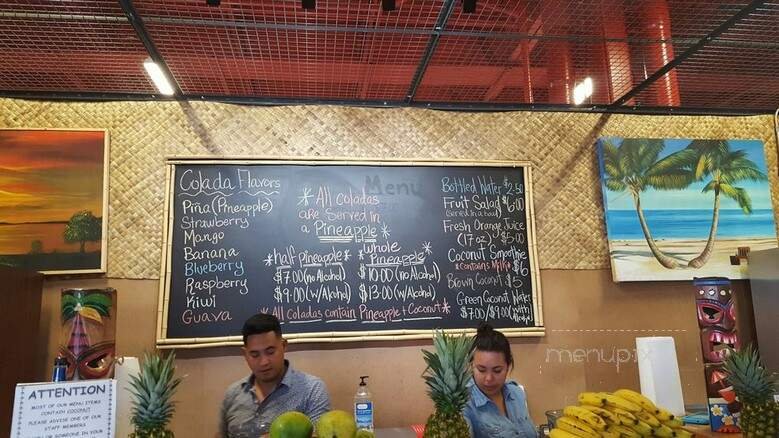 Colada Flavors
Piña (Pineapple)
Strawberry
Mango
Banana
Blueberry
Raspberry
Kiwi
Guava
Menu
*All Coladas
are Served In
a Pineapple*
*half pineapple*
$7.00 (no Alcohol)
$9.00 (w/Alcohol)
*whole
Pineapple*
$10.00 (no Alcohol)
$13.00 (w/Alcohol)
*All Coladas contain Pineapple + Coconut*
Bottled Water $2.50
Fruit Salad $6.00
(Served in a bowl)
Fresh Orange Juice
(17 oz) $5.00
Coconut Smoothie
*contains Milk* $6
Brown Coconut $5
Green Coconut Water
$7.00/$9.00 with
ATTENTION
MOST OF OUR ITEMS
CONTAIN COCONUT
PLEASE ADVISE ONE OF
OR SOMEONE IN YOUR
menupix